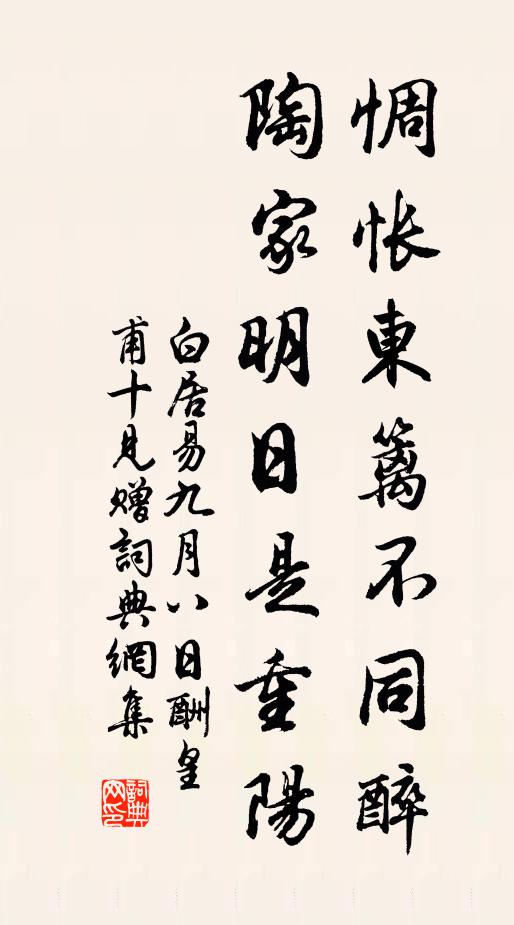 惆悵東籬不同醉
陶家明日是重陽
白居易九月八日酬皇
甫十見贈詞典網集
詞典
网印